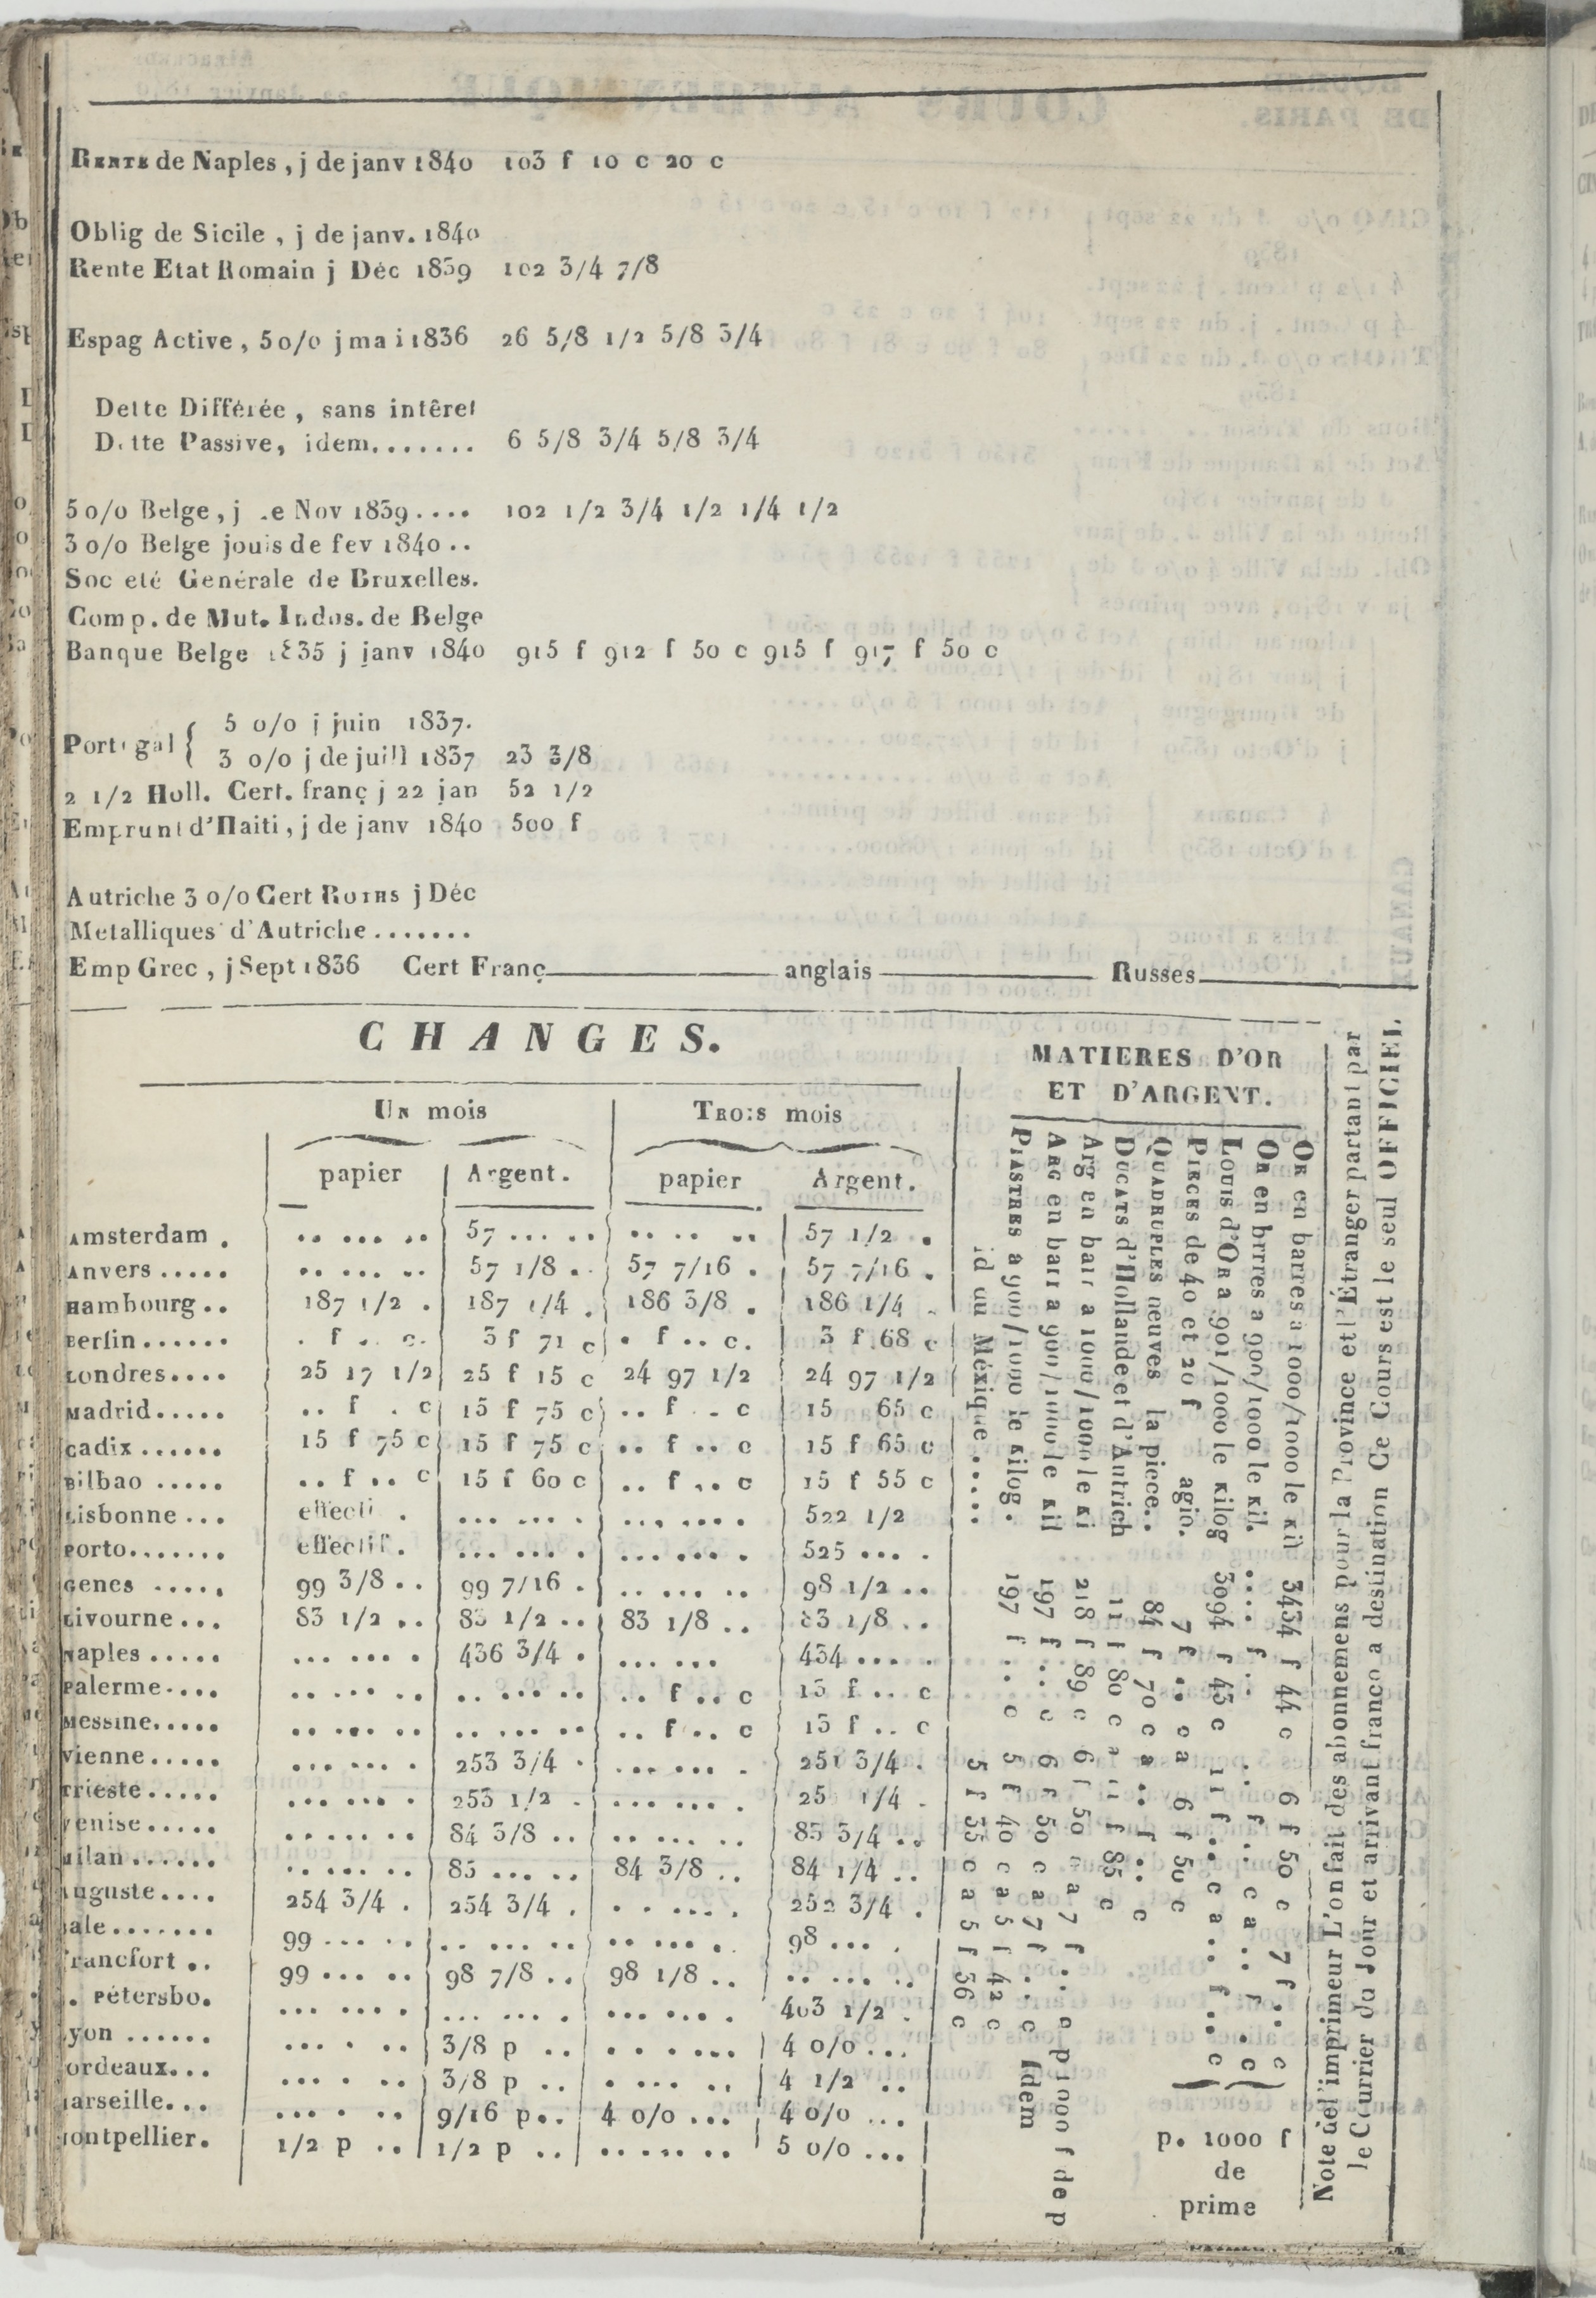 RENTE de Naples, j de janv 1840 103 f 10 c 20 c
Oblig de Sicile, j de janv. 1840
Rente Etat Romain j Déc 1839 102 3/4 7/8
Espag Active, 5 o/o j mai 1836 26 5/8 1/2 5/8 3/4
Dette Différée, sans intêret
Dette Passive, idem....... 6 5/8 3/4 5/8 3/4
5 o/o Belge, j .e Nov 1839.... 102 1/2 3/4 1/2 1/4 1/2
3 o/o Belge jouis de fev 1840..
Soc eté Genérale de Bruxelles.
Comp. de Mut. Indus. de Belge
Banque Belge 1835 j janv 1840 915 f 912 f 50 c 915 f 917 f 50 c
Portugal { 5 o/o j juin 1837.
3 o/o j de juill 1837 23 3/8
2 1/2 Holl. Cert. franç j 22 jan 52 1/2
Emprunt d'Haiti, j de janv 1840 500 f
Autriche 3 o/o Cert ROTHS j Déc
Metalliques d'Autriche.......
Emp Grec, j Sept 1836 Cert Franç anglais Russes
CHANGES.
UN mois TROIS mois
papier Argent. papier Argent.
Amsterdam . .. ... .. 57 ... .. .. .. .. 57 1/2 .
Anvers ..... .. ... .. 57 1/8 .. 57 7/16 . 57 7/16 .
Hambourg.. 187 1/2 . 187 1/4 . 186 3/8 . 186 1/4 .
Berlin...... . f .. c. 3 f 71 c . f .. c. 3 f 68 c
Londres.... 25 17 1/2 25 f 15 c 24 97 1/2 24 97 1/2
Madrid..... .. f . c 15 f 75 c .. f .. c 15 65 c
Cadix ...... 15 f 75 c 15 f 75 c .. f .. c 15 f 65 c
Bilbao ..... .. f .. c 15 f 60 c .. f .. c 15 f 55 c
Lisbonne ... effecti . ... ... . ... .... 522 1/2
Porto....... effectif. ... ... . ... ... . 525 ... .
Genes ..... 99 3/8 .. 99 7/16 . .. ... .. 98 1/2 ..
Livourne ... 83 1/2 .. 83 1/2 .. 83 1/8 .. 83 1/8 ..
Naples ..... ... ... . 436 3/4 . ... ... 434 ... .
Palerme.... .. ... .. .. ... .. .. f .. c 13 f .. c
Messine..... .. ... .. .. ... .. .. f .. c 13 f .. c
Vienne ..... ... ... . 253 3/4 . ... ... . 251 3/4 .
Trieste ..... ... ... . 253 1/2 . ... ... . 25 1/4 .
Venise ..... .. ... .. 84 3/8 .. .. ... .. 83 3/4 ..
Milan ...... .. ... .. 85 ... .. 84 3/8 .. 84 1/4 ..
Auguste.... 254 3/4 . 254 3/4 . .. ... . 252 3/4 .
ale....... 99 ... .. .. ... .. .. ... . 98 ... .
Francfort .. 99 ... .. 98 7/8 .. 98 1/8 .. .. ... ..
. Pétersbo. ... ... . ... ... . ... ... . 403 1/2 .
yon ...... ... . .. 3/8 p .. . . ... ... 4 o/o ...
ordeaux... ... . .. 3/8 p .. . ... .. 4 1/2 ..
arseille... ... . .. 9/16 p.. 4 o/o ... 4 o/o ...
ontpellier. 1/2 p .. 1/2 p .. .. ... .. 5 o/o ...
MATIERES D'OR
ET D'ARGENT.
OR en barres a 1000/1000 le Kil 3434 f 44 c 6 f 50 c 7 f .. c
OR en brres a 900/1000 le Kil. .... f .. .. f .. c a .. f .. c
LOUIS d'OR a 901/1000 le Kilog 3094 f 43 c 11 f .. c a .. f .. c
PIECES de 40 et 20 f agio. 7 f .. c a 6 f 50 c
QUADRUPLES neuves la piece.. 84 f 70 c a .. f .. c
DUCATS d'Hollande et d'Autrich 11 f 80 c a 11 f 85 c
Arg en barr a 1000/1000 le Ki 218 f 89 c 6 f 50 c a 7 f .. c p 1000 f de p
ARG en barr a 900/1000 le Kil 197 f .. c 6 f 50 c a 7 f .. c Idem
PIASTRES a 900/1000 le Kilog. 197 f .. c 5 f 40 c a 5 f 42 c
id du Méxique ..... 5 f 35 c a 5 f 36 c
p. 1000 f
de
prime
Note de l'imprimeur L'on fait des abonnemens pour la Province et l'Étranger partant par
le Courrier du Jour et arrivant franco a destination Ce Cours est le seul OFFICIEL